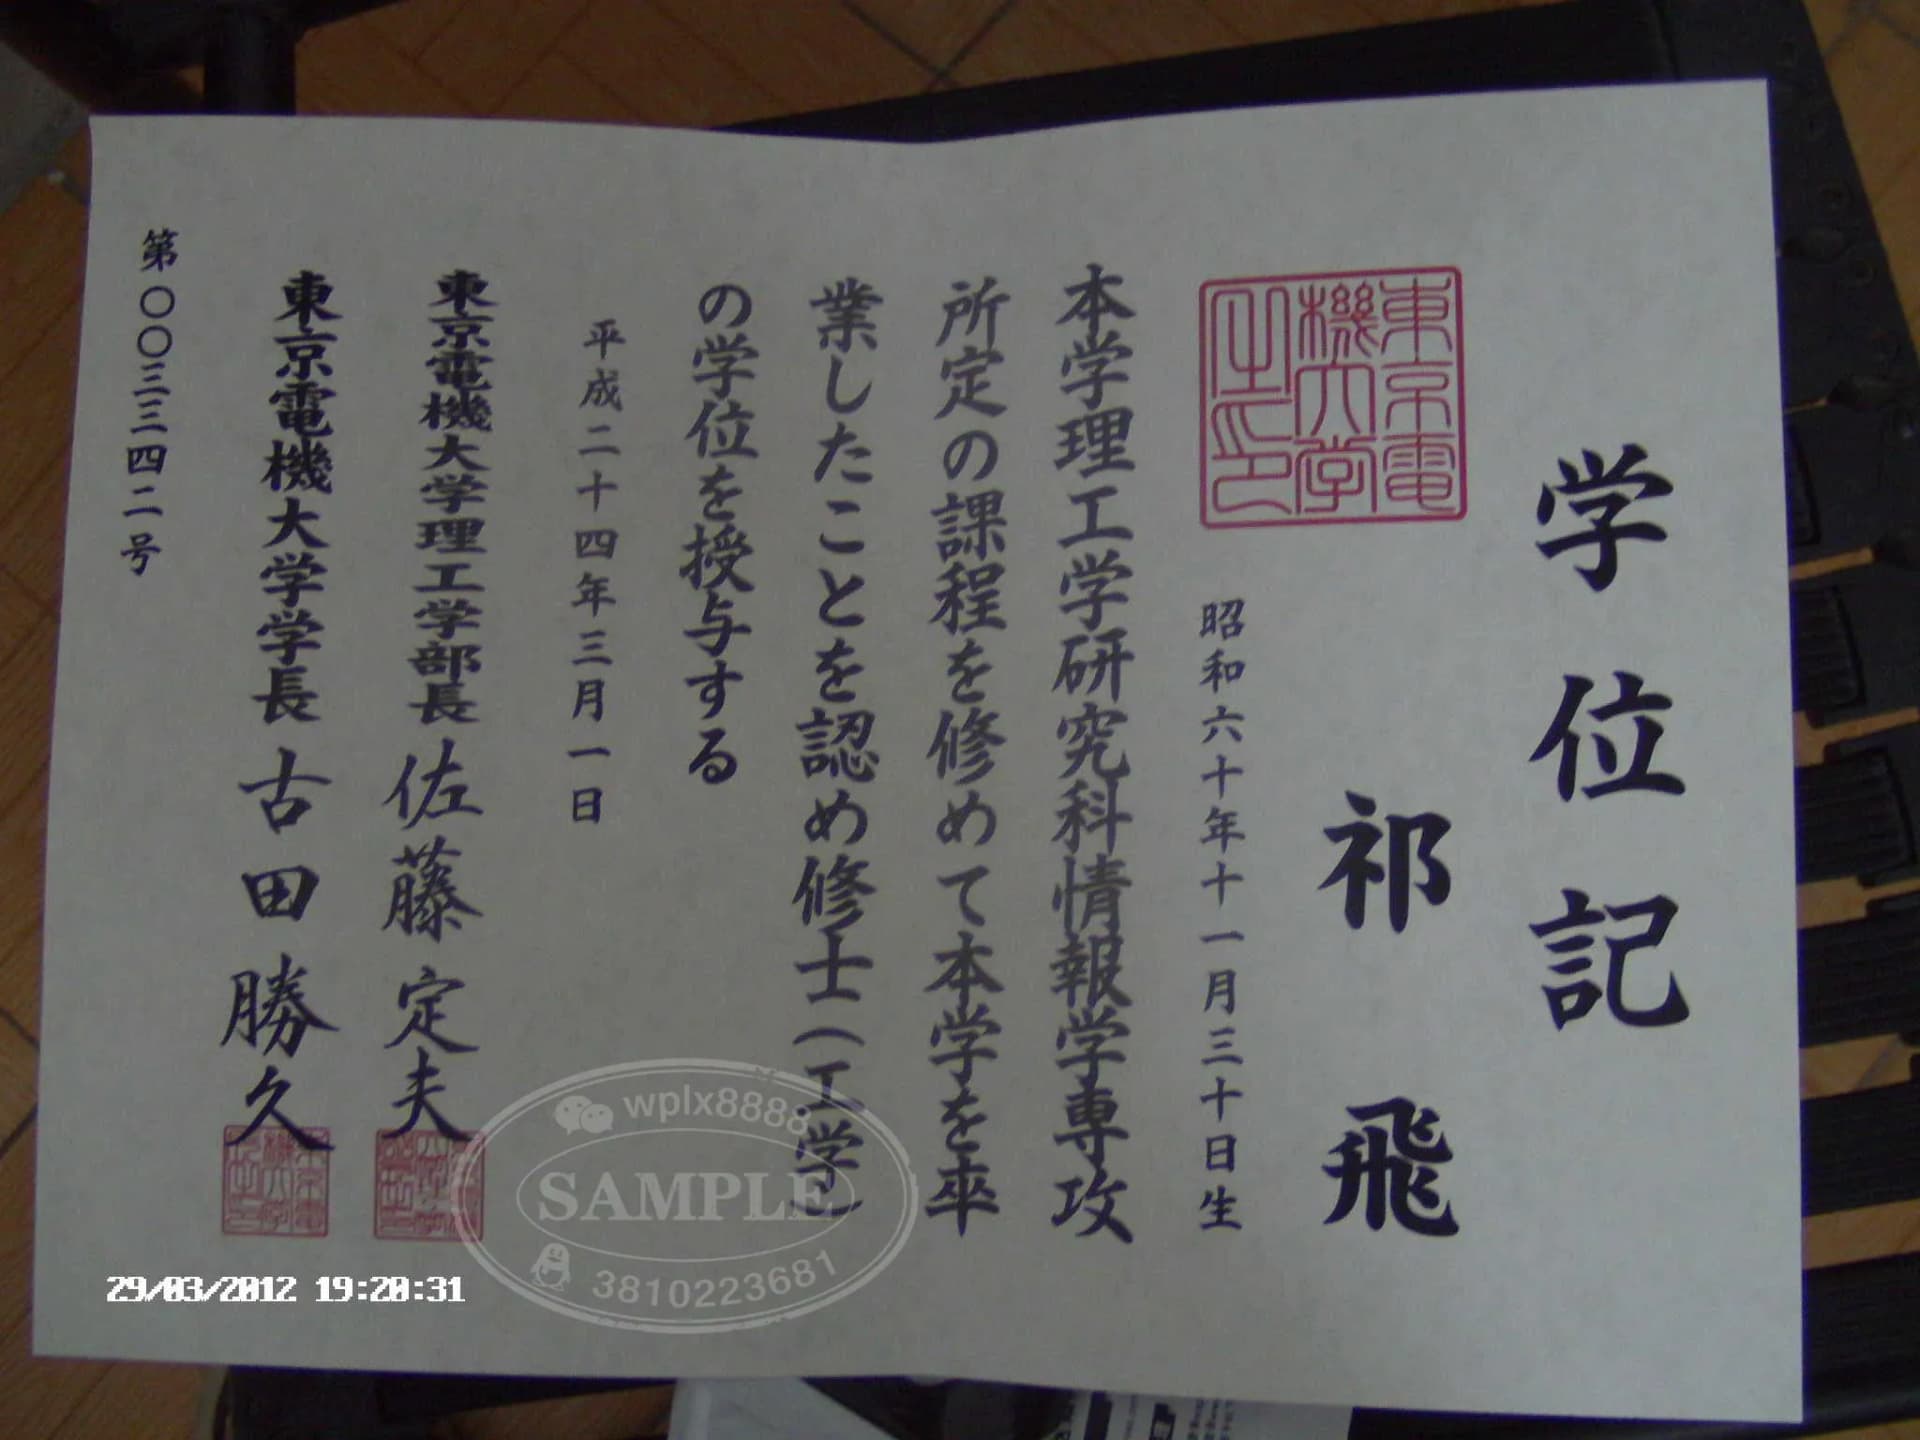 学位記
東京電
機大学
之印
祁飛
昭和六十年十一月三十日生
本学理工学研究科情報学専攻
所定の課程を修めて本学を卒
業したことを認め修士(工学)
の学位を授与する
平成二十四年三月一日
東京電機大学理工学部長 佐藤定夫
東京電機大学学長 古田勝久
第〇〇三三四二号
wplx8888
SAMPLE
3810223681
29/03/2012 19:20:31